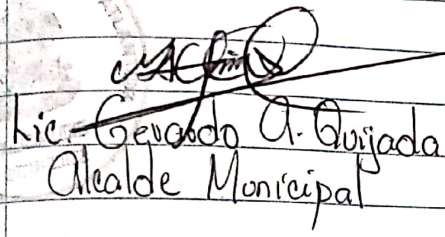 Lic. Gerardo A. Quijada
Alcalde Municipal